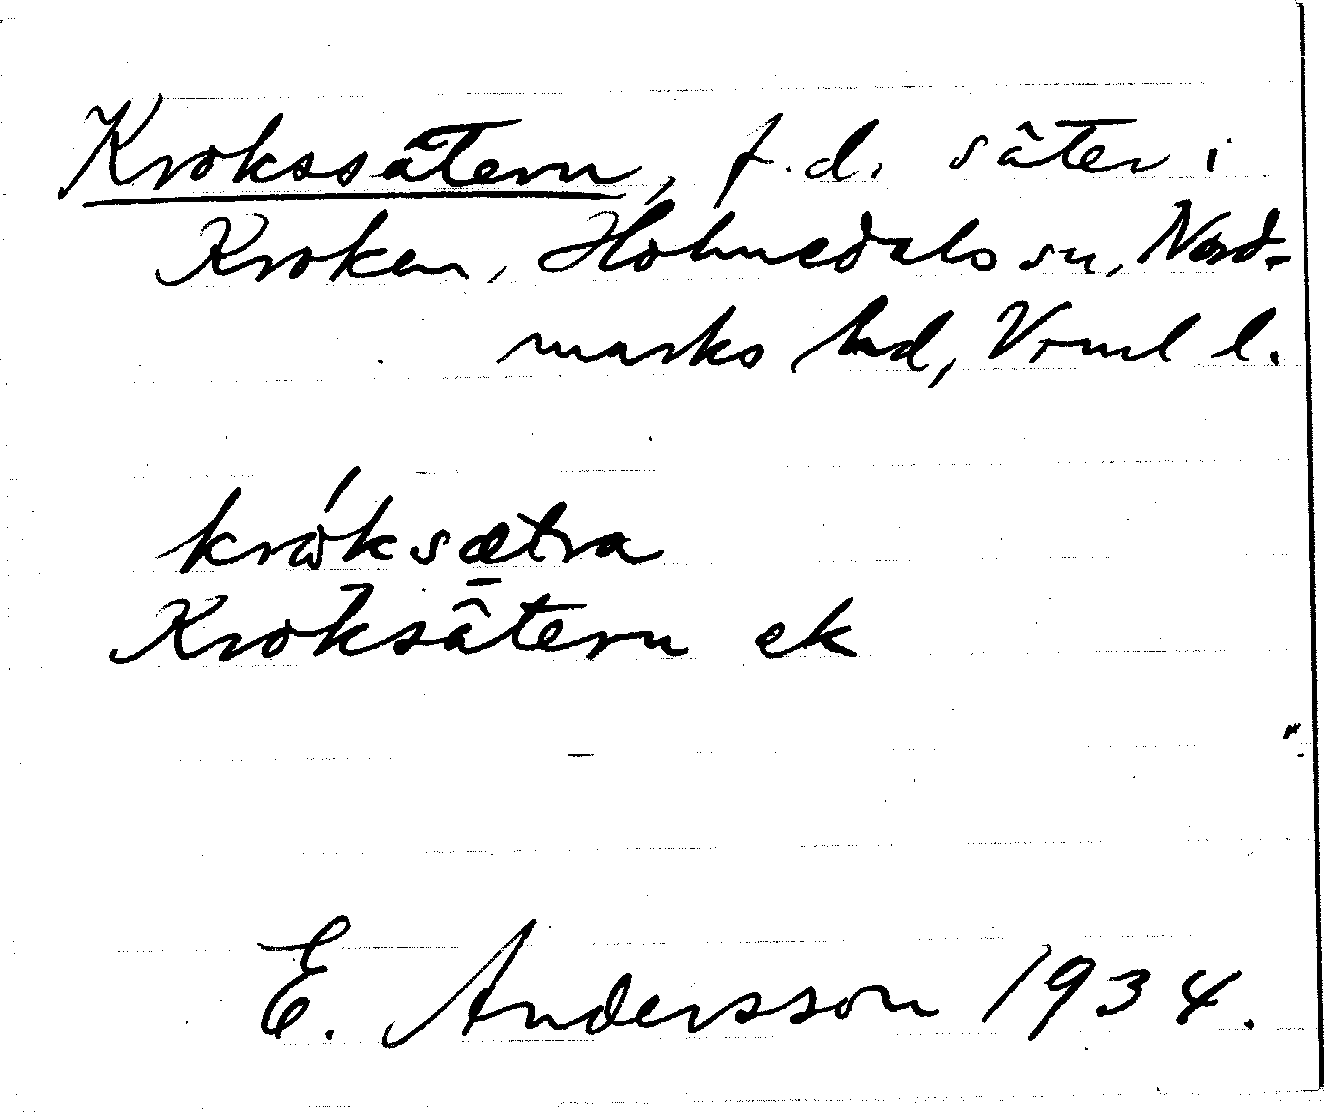 Krokssätern, f.d. säter i
Kroken, Holmedals sn, Nord-
marks hd, Vrml l.
króksætra
Kroksätern ek
E. Andersson 1934.